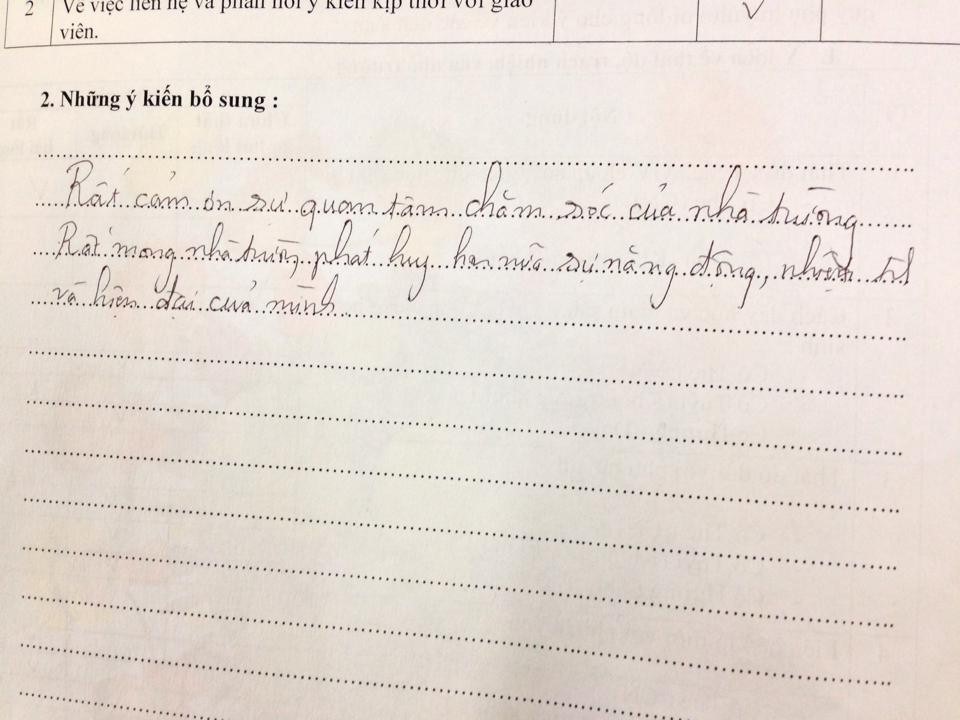 2 Về việc liên hệ và phản hồi ý kiến kịp thời với giáo
viên.
2. Những ý kiến bổ sung :
Rất cảm ơn sự quan tâm chăm sóc của nhà trường
Rất mong nhà trường phát huy hơn nữa sự năng động, nhiệt
và hiện đại của mình